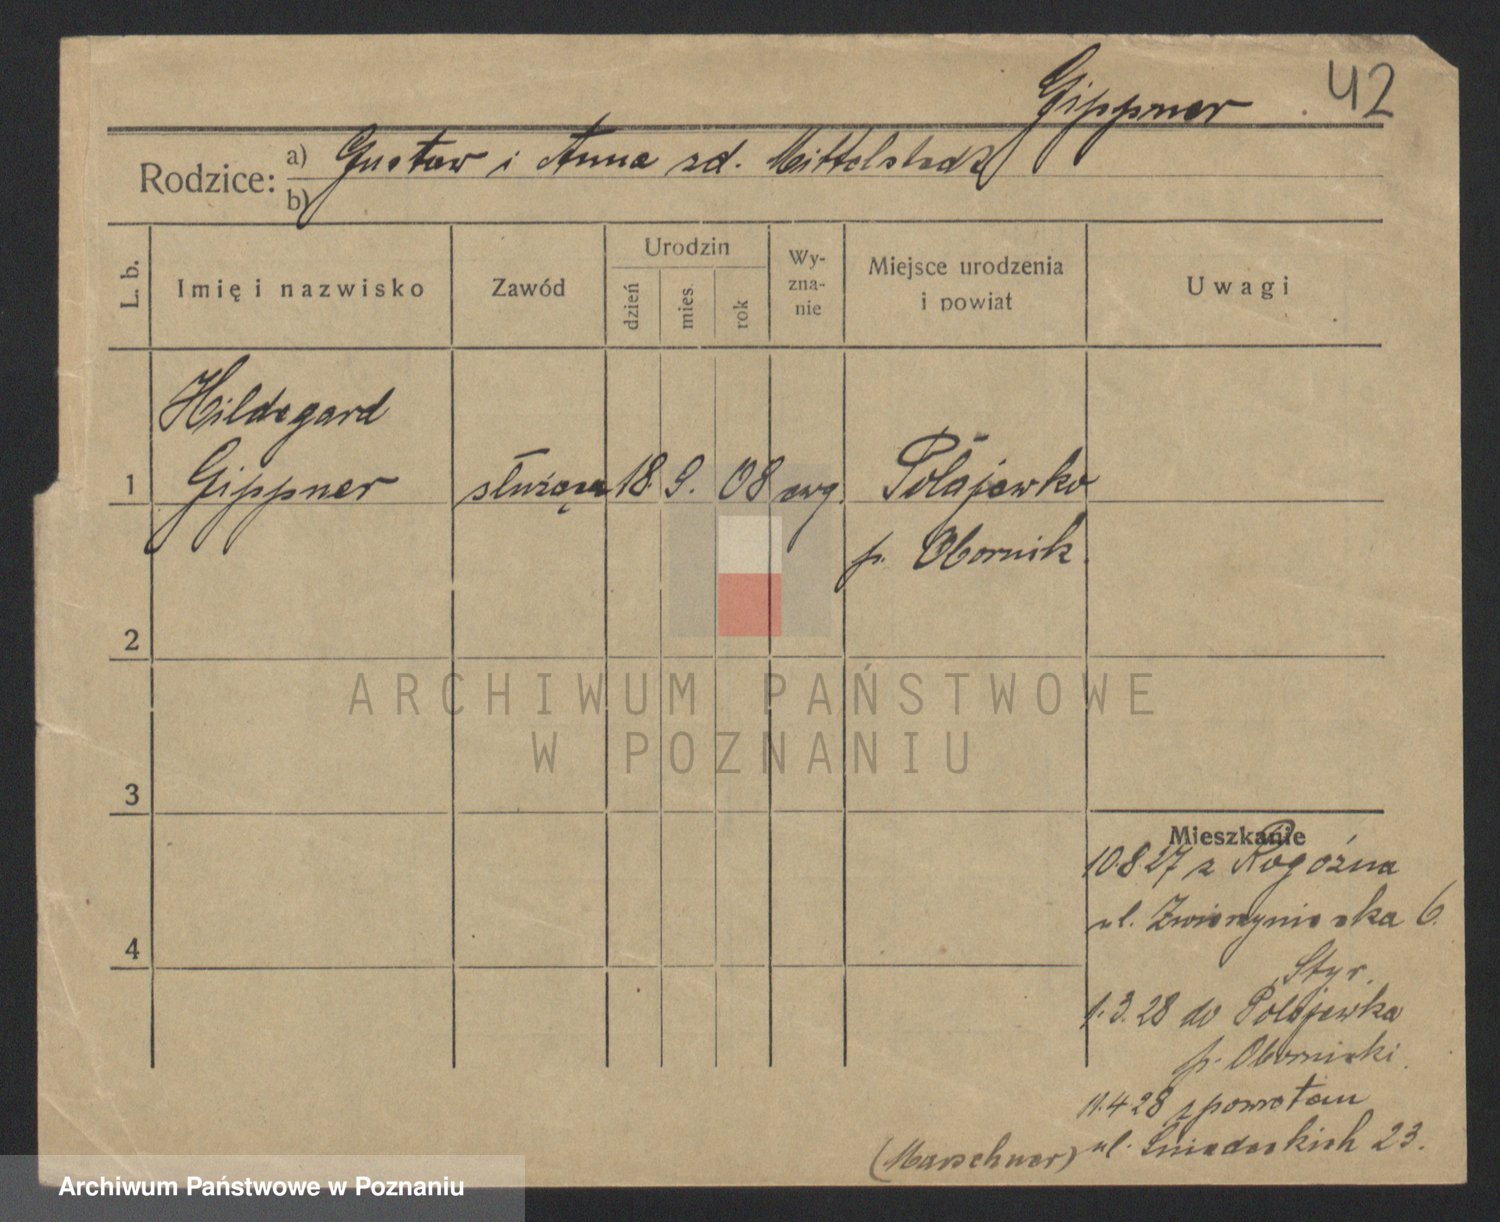 Gippner 42
Rodzice: a) Gustaw i Anna zd. Mittelstedt
b)
L. b. Imię i nazwisko Zawód Urodzin dzień mies. rok Wyznanie Miejsce urodzenia i powiat Uwagi
Hildegard
1 Gippner służąca 18. 9. 08 ewg. Połajewko
p. Obornik.
2
ARCHIWUM PAŃSTWOWE
W POZNANIU
3
Mieszkanie
10.8.27 z Rogoźna
ul. Zwierzyniecka 6.
4
Styr.
1.3.28 do Połajewka
p. Obornicki.
11.4.28 z powrotem
(Marschner) ul. Śniadeckich 23.
Archiwum Państwowe w Poznaniu